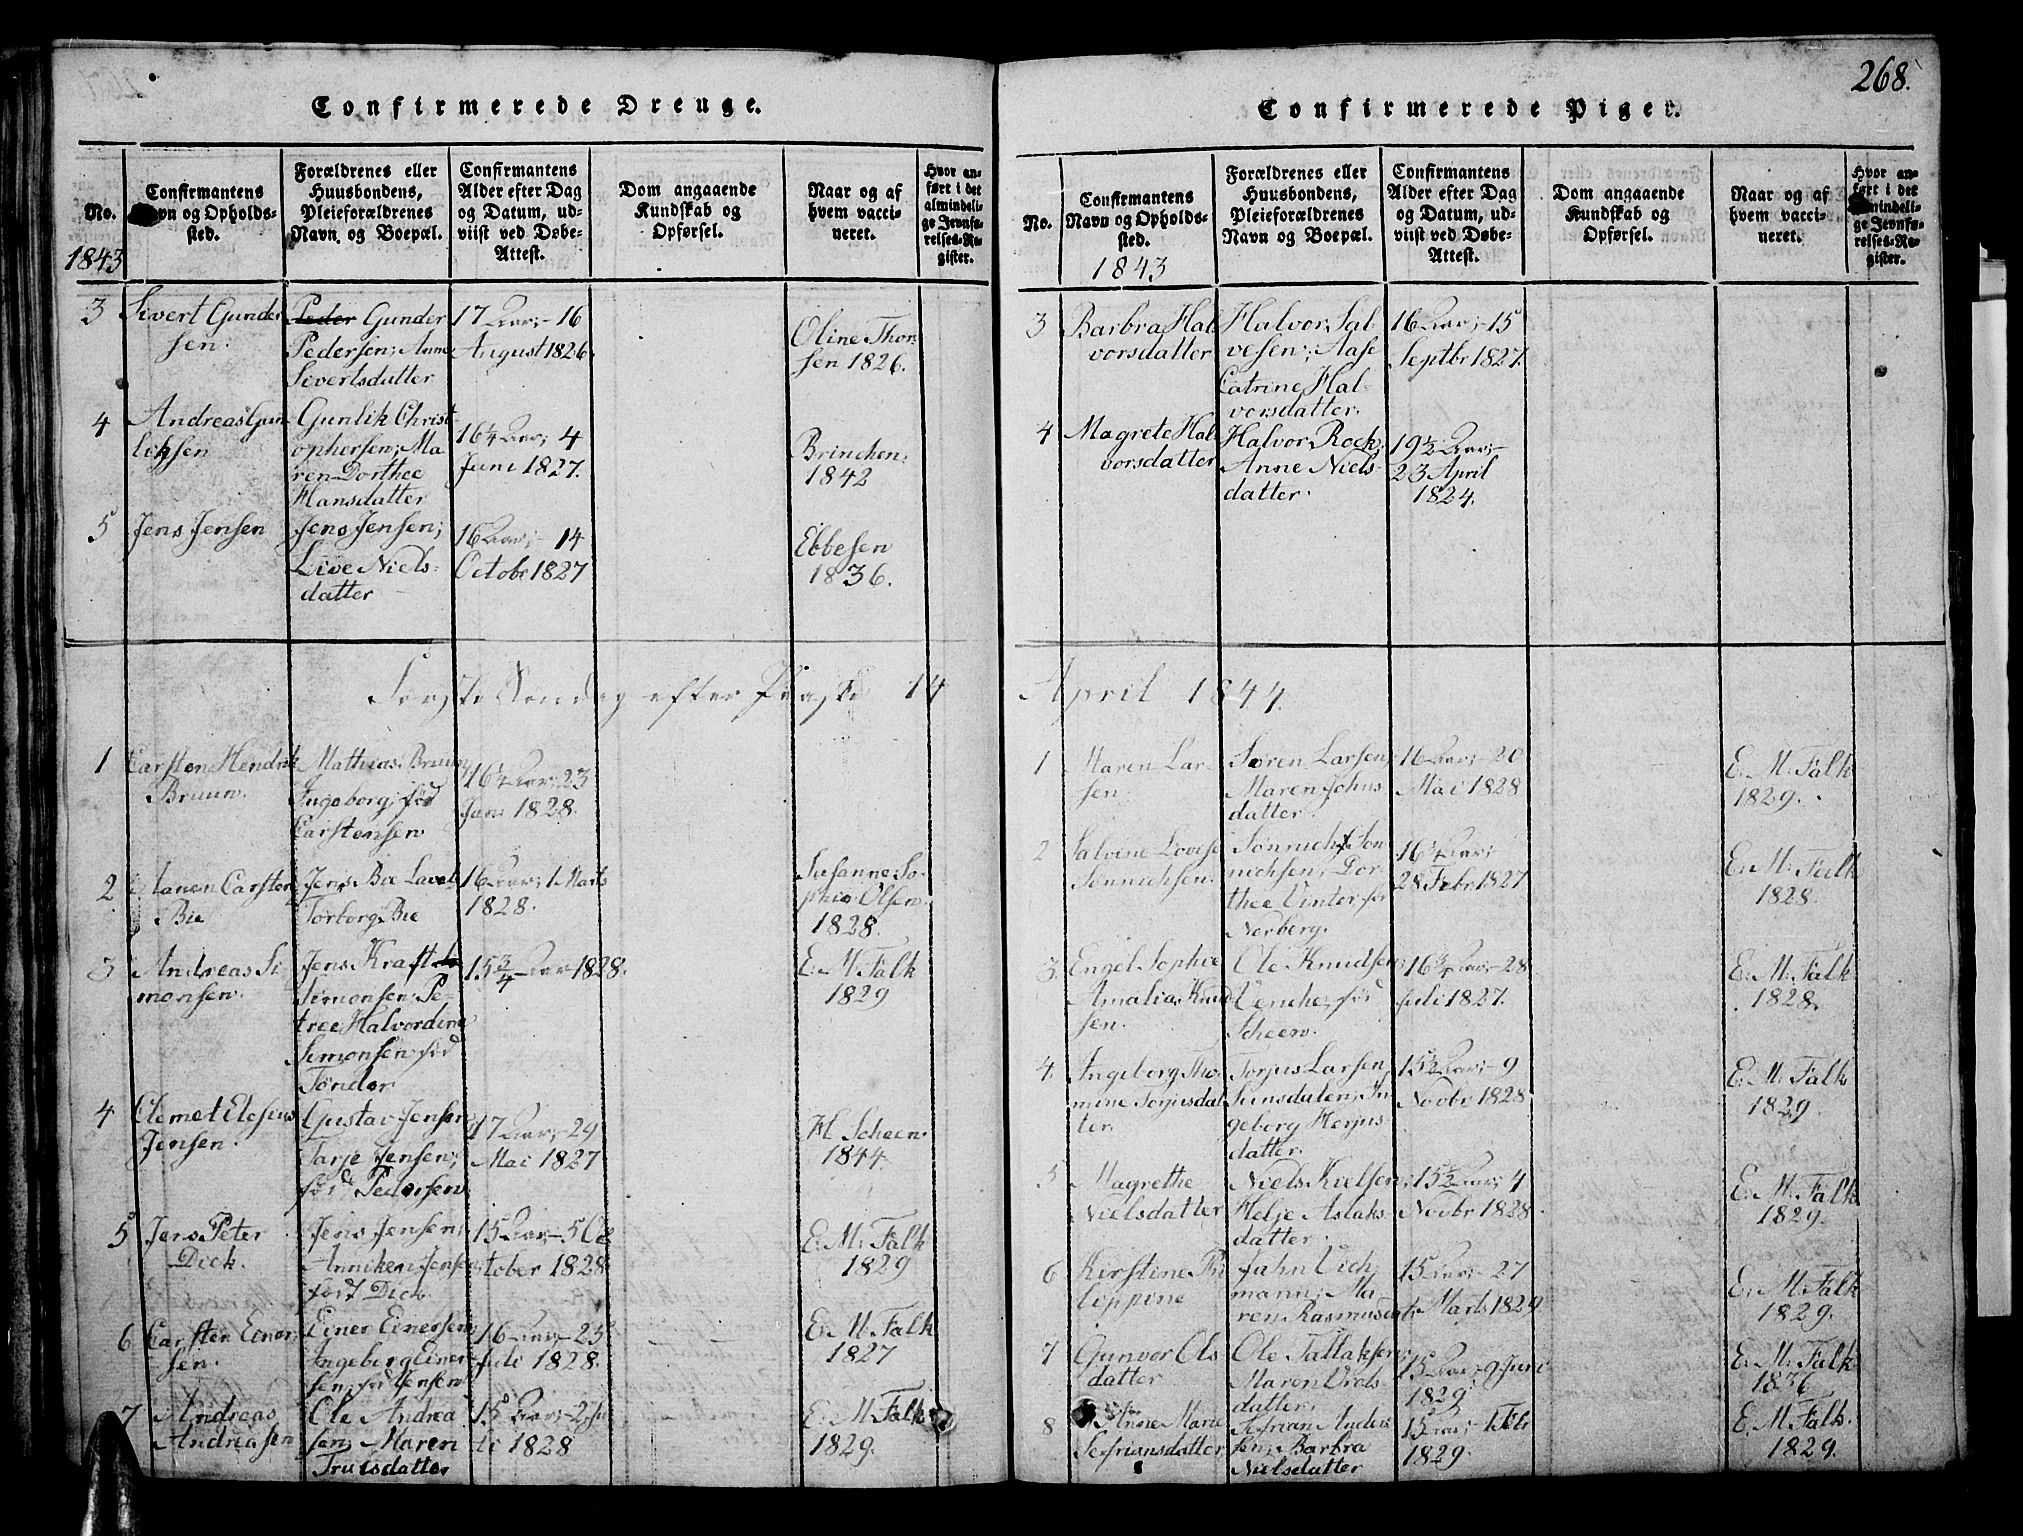 268.
Confirmerede Drenge.
No.
1843
Confirmantens
Navn og Opholds-
sted.
Forældrenes eller
Huusbondens,
Pleieforældrenes
Navn og Boepæl.
Confirmantens
Alder efter Dag
og Datum, ud-
viist ved Døbe-
Attest.
Dom angaaende
Kundskab og
Opførsel.
Naar og af
hvem vacci-
neret.
Hvor an-
ført i det
almindeli-
ge Jevnfø-
relses-Re-
gister.
3
Sivert Gunder
sen.
Peder Gunder
Pedersen; Anne
Sivertsdatter
17 Aar; - 16
August 1826.
Oline Thor
sen 1826.
4
Andreas Gun
liksen
Gunlik Christ
ophersen; Ma
ren Dorthee
Hansdatter
16 1/4 Aar; 4
Juni 1827.
Brinchen.
1842
5
Jens Jensen
Jens Jensen;
Live Niels-
datter
16 Aar; - 14
Octobr 1827
Ebbesen
1836.
Første Søndag efter Paaske 14
1
Carsten Hendrik
Bruun.
Mathias Bruun,
Ingeborg; fød
Carstensen
16 1/4 Aar; 23
Jan: 1828.
2
Carsten
Bie
Jens Bie
Torborg Bie
16 Aar; 1 Marts
1828.
Susanne So
phia Olsen
1828.
3
Andreas Si
monsen.
Jens Kraft
Simonsen; Pe-
tree Halvordine
Simonsen fød
Tønder
15 3/4 Aar 1828.
E. M. Falk
1829
4
Clemet Elesius
Jensen.
Gustav Jensen
Tarje Jensen;
fød Pedersen
17 Aar; - 29
Mai 1827
H Scheen.
1844.
5
Jens Peter
Dick.
Jens Jensen;
Anniken Jensen
født Dick
15 Aar; - 5 Oc
tober 1828
E. M. Falk
1829
6
Carsten Einer
sen.
Einer Einersen;
Ingeborg Einer
sen, fød Jensen
16 Aar - 25
Juli 1828.
E. M. Falk
1827
7
Andreas
Andreasen
Ole Andrea
sen; Maren
Trulsdatter
15 Aar - 2 Ju
li 1828
E. M. Falk
1829.
Confirmerede Piger.
No.
Confirmantens
Navn og Opholds-
sted.
1843
Forældrenes eller
Huusbondens,
Pleieforældrenes
Navn og Boepæl.
Confirmantens
Alder efter Dag
og Datum, ud-
viist ved Døbe-
Attest.
Dom angaaende
Kundskab og
Opførsel.
Naar og af
hvem vacci-
neret.
Hvor an-
ført i det
almindeli-
ge Jevnfø-
relses-Re-
gister.
3
Barbra Hal
vorsdatter
Halvor Sal-
vesen; Aase
Catrine Hal-
vorsdatter.
16 Aar; - 15
Septbr 1827.
4
Magrete Hal
vorsdatter
Halvor Rock;
Anne Niels-
datter.
19 1/2 Aar; -
23 April
1824.
April 1844.
1
Maren Lar-
sen
Søren Larsen,
Maren Johns
datter.
16 Aar; - 20
Mai 1828
E. M. Falk
1829.
2
Salvine Lovise
Sønnichsen.
Sønnich Søn
nichsen; Dor-
thee Vinter, fød
Norberg.
16 3/4 Aar; -
28 Febr. 1827
E. M. Falk
1828.
3.
Engel Sophie
Amalia Knud
sen.
Ole Knudsen;
Venche, fød
Scheen.
16 3/4 Aar; - 28
Juli 1827.
E. M. Falk
1828.
4.
Ingeborg Tho-
mine Torjusdat
ter.
Torjus Larsen,
Sunsdalen; In
geborg Herjus
datter.
15 1/2 Aar; - 9
Novbr 1828
E. M. Falk
1829.
5
Magrethe
Nielsdatter
Niels Kielsen;
Helje Aslaks-
datter.
15 1/2 Aar; 4
Novbr 1828.
E. M. Falk
1829.
6
Kirstine Phi
lippine
Jahn Vich
mann; Ma
ren Rasmusdat
15 Aar; - 27
Marts 1829
E. M. Falk
1829.
7
Gunvor Ols
datter
Ole Tallaksen;
Maren Orals
datter.
15 Aar; 9 Juni
1829
E. M. Falk
1836
8
Anne Marie
Sefriansdatter
Sefrian Anders
sen; Barbra
Nielsdatter
15 Aar; - 1 Febr
1829.
E. M. Falk.
1829.